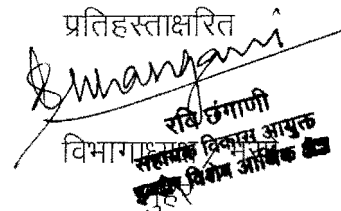 प्रतिहस्ताक्षरित
रवि छंगाणी
सहायक विकास आयुक्त
इन्दौर विशेष आर्थिक क्षेत्र
विभागाध्यक्ष
मुहर